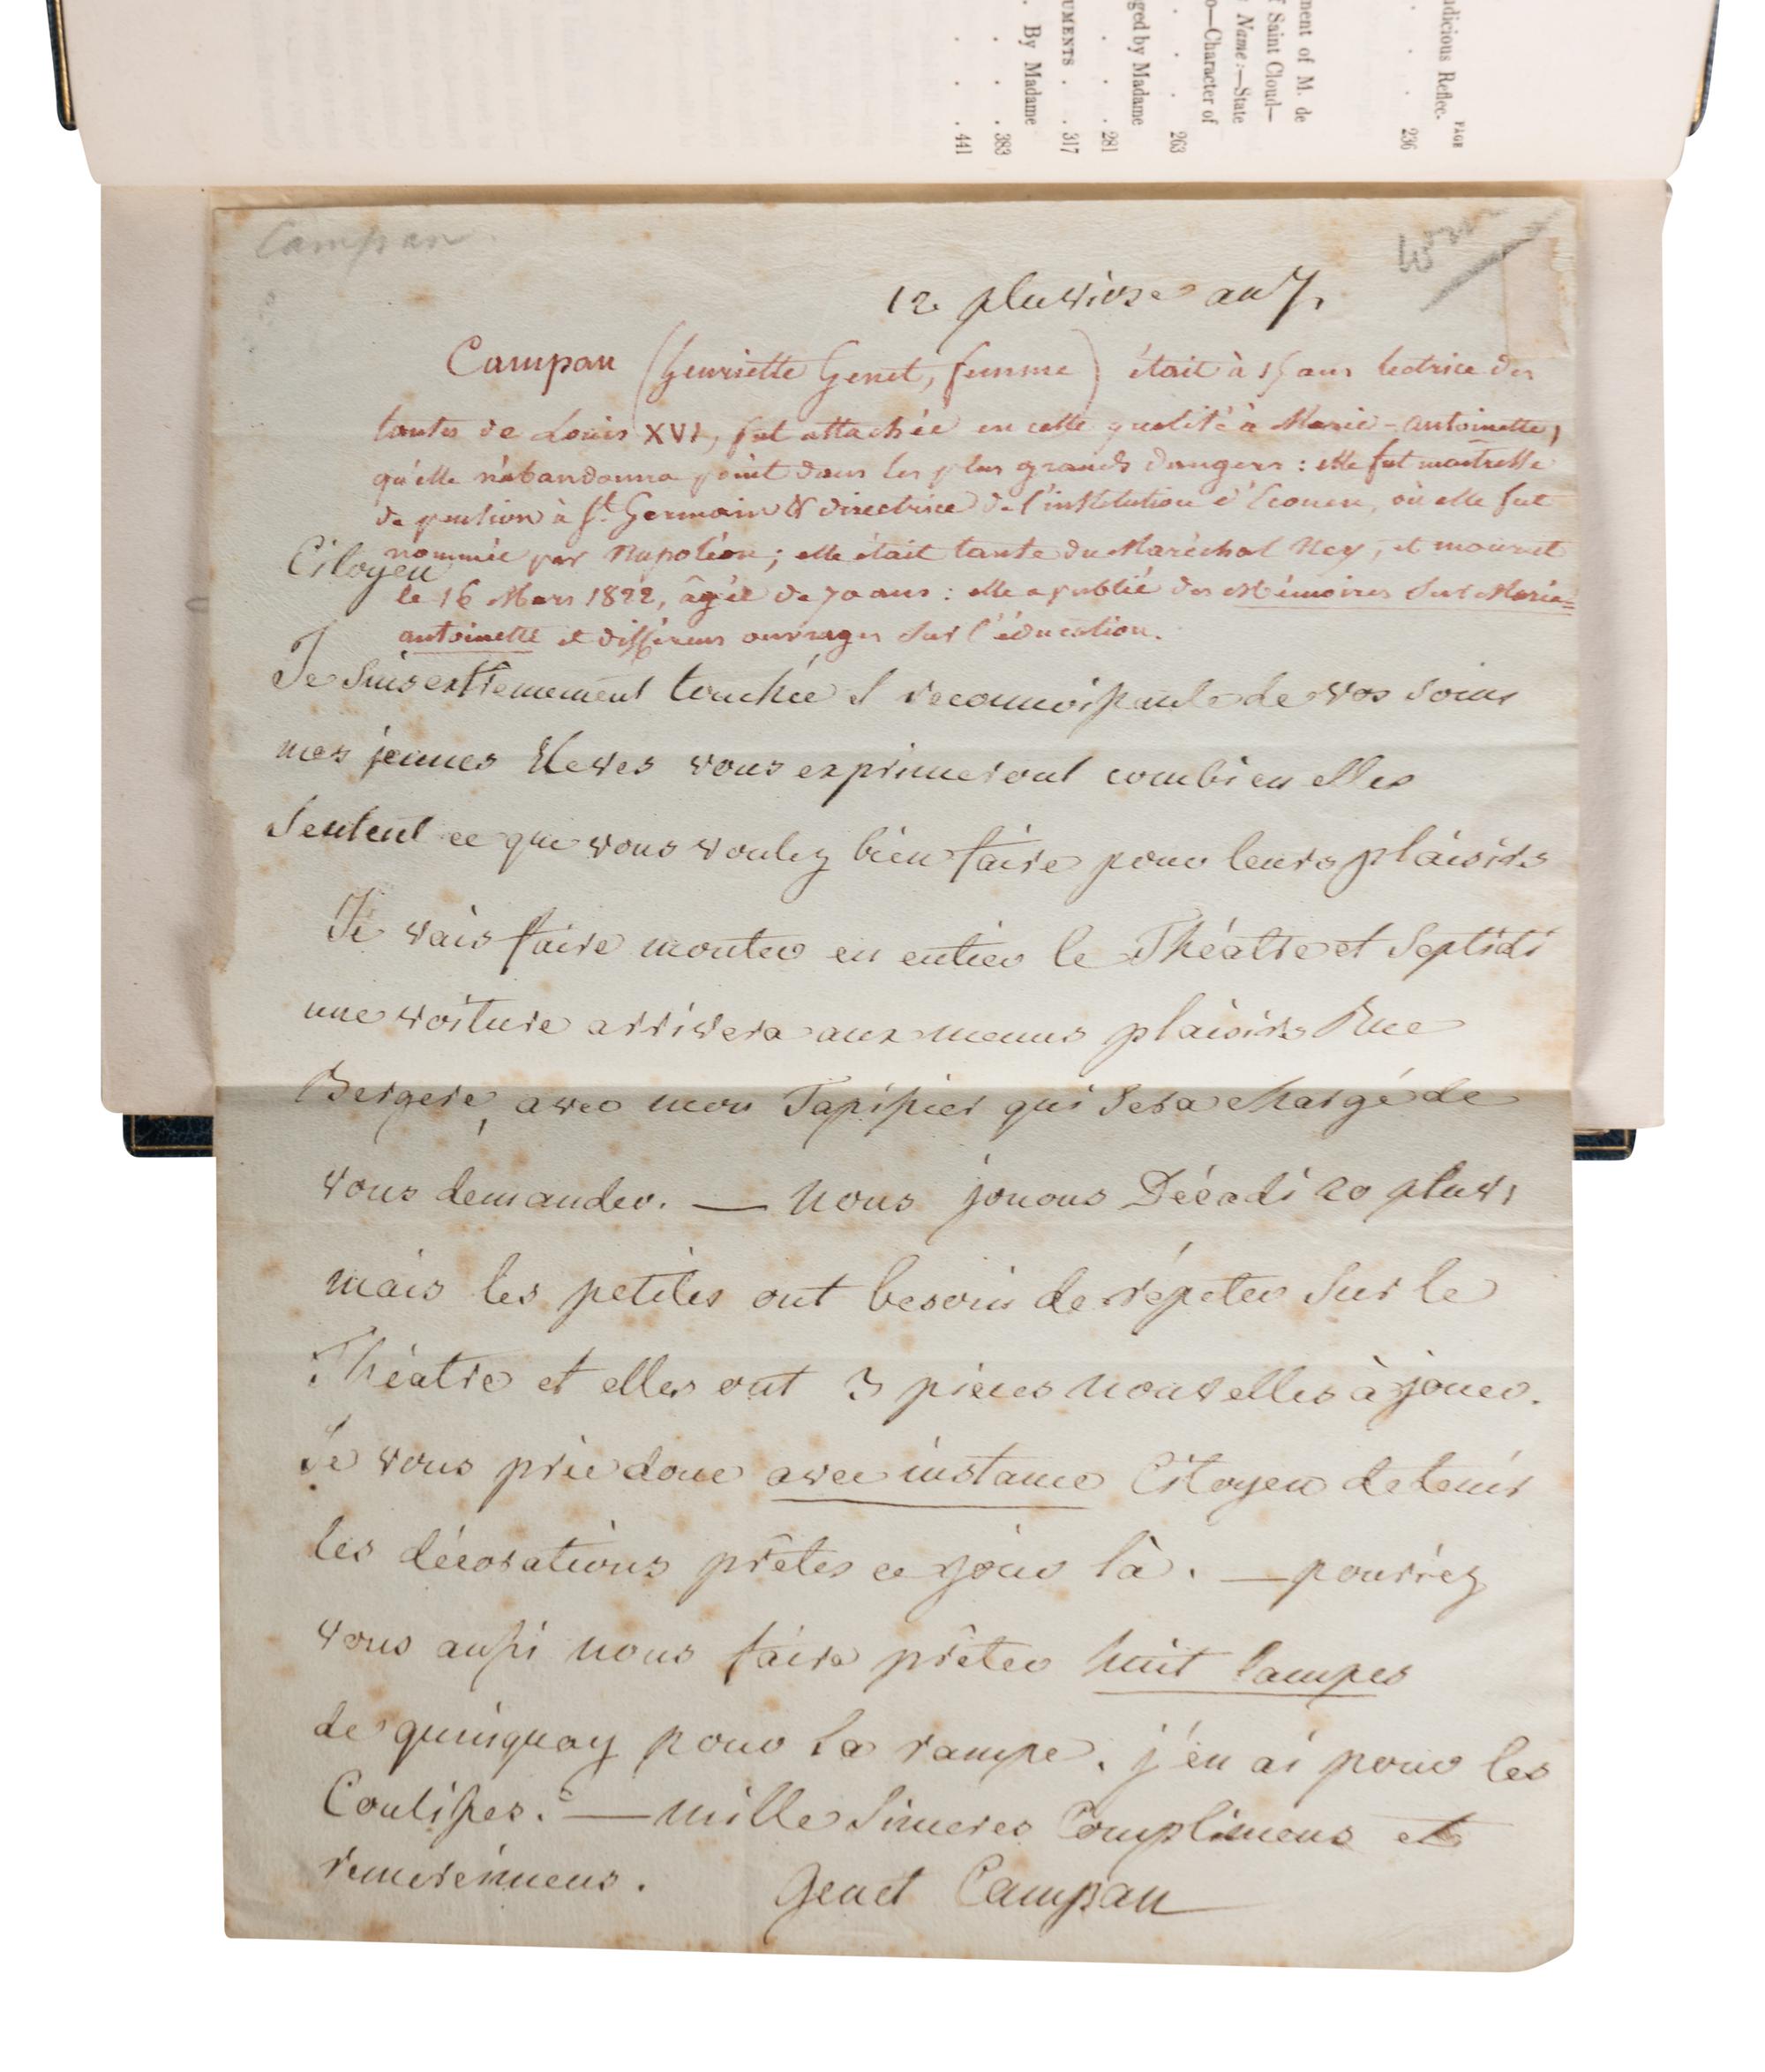 ndicious Reflec-
PAGE
. . . 236
ment of M. de
f Saint Cloud—
Name:—State
o—Character of
. . . 263
ged by Madame
. . . 281
UMENTS . . 317
. By Madame
. . . 383
. . . 441
Campan.
12 pluviose an 7.
Campan (henriette Genet, femme) était à 15 ans lectrice des
tantes de Louis XVI, fut attachée en cette qualité à Marie-antoinette,
qu'elle n'abandonna point dans les plus grands dangers : elle fut maitresse
de pension à St. Germain & directrice de l'institution d'Ecouen, où elle fut
nommée par Napoléon ; elle était tante du Maréchal Ney, et mourut
le 16 Mars 1822, âgée de 70 ans : elle a publié des Mémoires sur Marie=
antoinette et différens ouvrages sur l'éducation.
Citoyen
Je suis extremement touchée et reconnoissante de vos soins
mes jeunes Eleves vous exprimeront combien elles
sentent ce que vous voulez bien faire pour leurs plaisirs
Je vais faire monter en entier le Théatre et Septidi
une voiture arrivera aux menus plaisirs Rue
Bergere, avec mon Tapissier qui sera chargé de
vous demander. — nous jouons Décadi 20 pluv,
mais les petites ont besoin de répeter sur le
Théatre et elles ont 3 pieces nouvelles à jouer.
Je vous prie donc avec instance Citoyen de tenir
les décorations prêtes ce jour là. — pourriez
vous aussi nous faire prêter huit lampes
de quinquay pour la rampe. j'en ai pour les
Coulisses. — mille sinceres Complimens et
remercimens.
Genet Campan